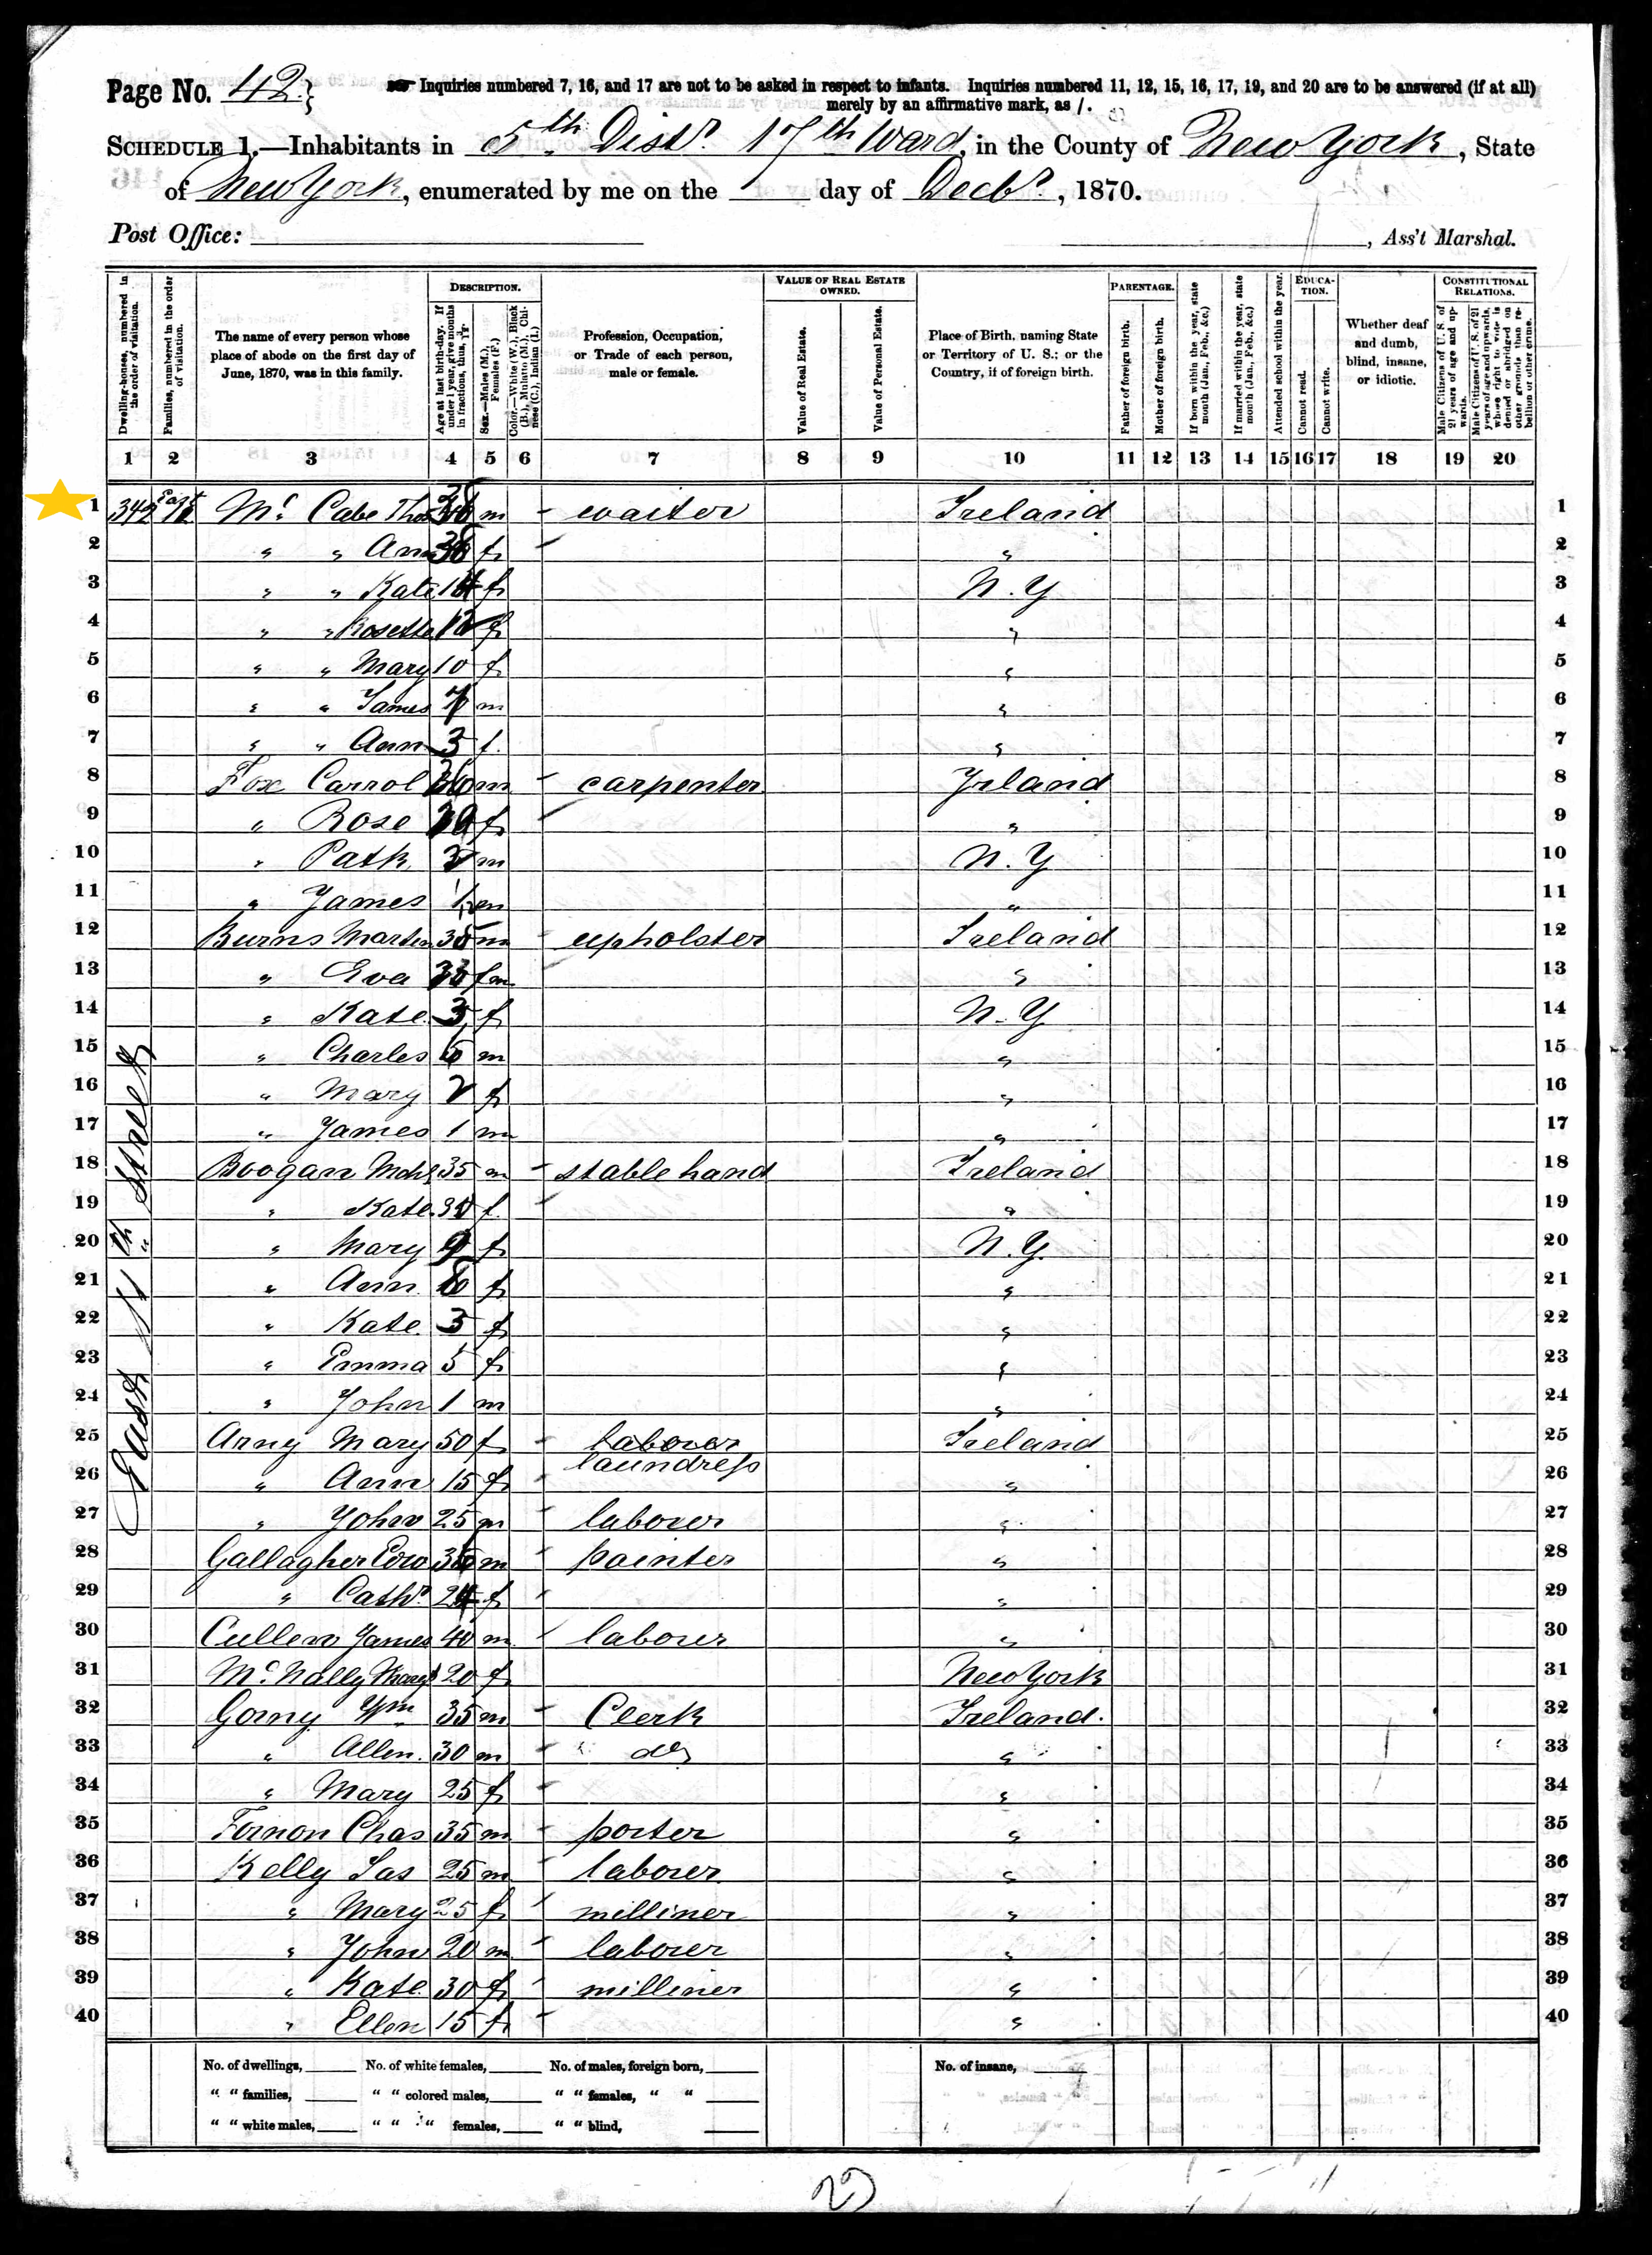 Page No. 42
Inquiries numbered 7, 16, and 17 are not to be asked in respect to infants. Inquiries numbered 11, 12, 15, 16, 17, 19, and 20 are to be answered (if at all)
merely by an affirmative mark, as /.
SCHEDULE 1.—Inhabitants in 5th Distr. 17th Ward, in the County of New York, State
of New York, enumerated by me on the day of Decbr., 1870.
Post Office: , Ass't Marshal.
Dwelling-houses, numbered in the order of visitation.
Families, numbered in the order of visitation.
The name of every person whose place of abode on the first day of June, 1870, was in this family.
DESCRIPTION.
Age at last birth-day. If under 1 year, give months in fractions, thus,
Sex.—Males (M.), Females (F.)
Color.—White (W.), Black (B.), Mulatto (M.), Chinese (C.), Indian (I.)
Profession, Occupation, or Trade of each person, male or female.
VALUE OF REAL ESTATE OWNED.
Value of Real Estate.
Value of Personal Estate.
Place of Birth, naming State or Territory of U. S.; or the Country, if of foreign birth.
PARENTAGE.
Father of foreign birth.
Mother of foreign birth.
If born within the year, state month (Jan., Feb., &c.)
If married within the year, state month (Jan., Feb., &c.)
Attended school within the year.
EDUCATION.
Cannot read.
Cannot write.
Whether deaf and dumb, blind, insane, or idiotic.
CONSTITUTIONAL RELATIONS.
Male Citizens of U. S. of 21 years of age and upwards.
Male Citizens of U. S. of 21 years of age and upwards, whose right to vote is denied or abridged on other grounds than rebellion or other crime.
1 2 3 4 5 6 7 8 9 10 11 12 13 14 15 16 17 18 19 20
1 342 Mc Cabe Thos m - waiter Ireland 1
2 " " Ann f " 2
3 " " Kate 14 f N.Y 3
4 " " Rosetta 12 f " 4
5 " " Mary 10 f " 5
6 " " James 7 m " 6
7 " " Ann 3 f. " 7
8 Fox Carrol m - carpenter Yrland 8
9 " Rose f " 9
10 " Patk. m N.Y 10
11 " James m " 11
12 Burns Martin 35 m - upholster Ireland 12
13 " Eva f " 13
14 " Kate 3 f N.Y 14
15 " Charles m " 15
16 " Mary 2 f " 16
17 " James 1 m " 17
18 Boogan Mchl 35 m - stable hand Ireland 18
19 " Kate f. " 19
20 " Mary 9 f N.Y. 20
21 " Ann f " 21
22 " Kate 3 f " 22
23 " Emma 5 f " 23
24 " John 1 m " 24
25 Arny Mary 50 f - laborer Ireland 25
26 " Ann 15 f laundress " 26
27 " John 25 m laborer " 27
28 Gallagher Edw m painter " 28
29 " Cathr 24 f " 29
30 Cullen James 40 m laborer " 30
31 Mc Nally Mary 20 f New York 31
32 Gorny Wm 35 m - Clerk Ireland. 32
33 " Allen. 30 m - do " 33
34 " Mary 25 f - " 34
35 Fornon Chas 35 m - porter " 35
36 Kelly Jas 25 m - laborer " 36
37 " Mary 25 f milliner " 37
38 " John 20 m laborer " 38
39 " Kate 30 f milliner " 39
40 " Ellen 15 f " 40
East 11th Street
No. of dwellings, No. of white females, No. of males, foreign born, No. of insane,
" " families, " " colored males, " " females, " "
" " white males, " " " females, " " blind,